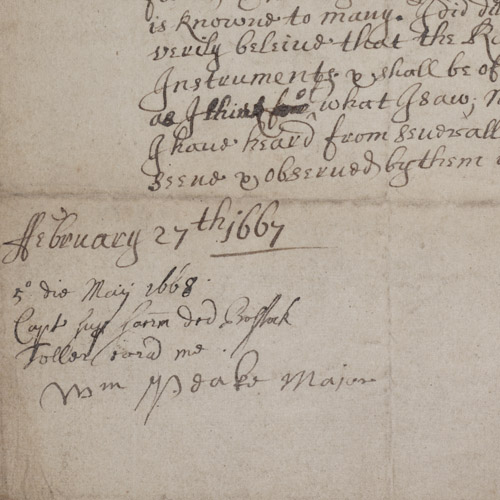 is knowne to many. I did
verily beleive that the
Instruments yt shall be
as I think for what I saw;
I have heard from severall
seene & observed by them
ffebruary 27th 1667
5o die Maij 1668
Capt sup sacrm ded
me
Wm Peake Major